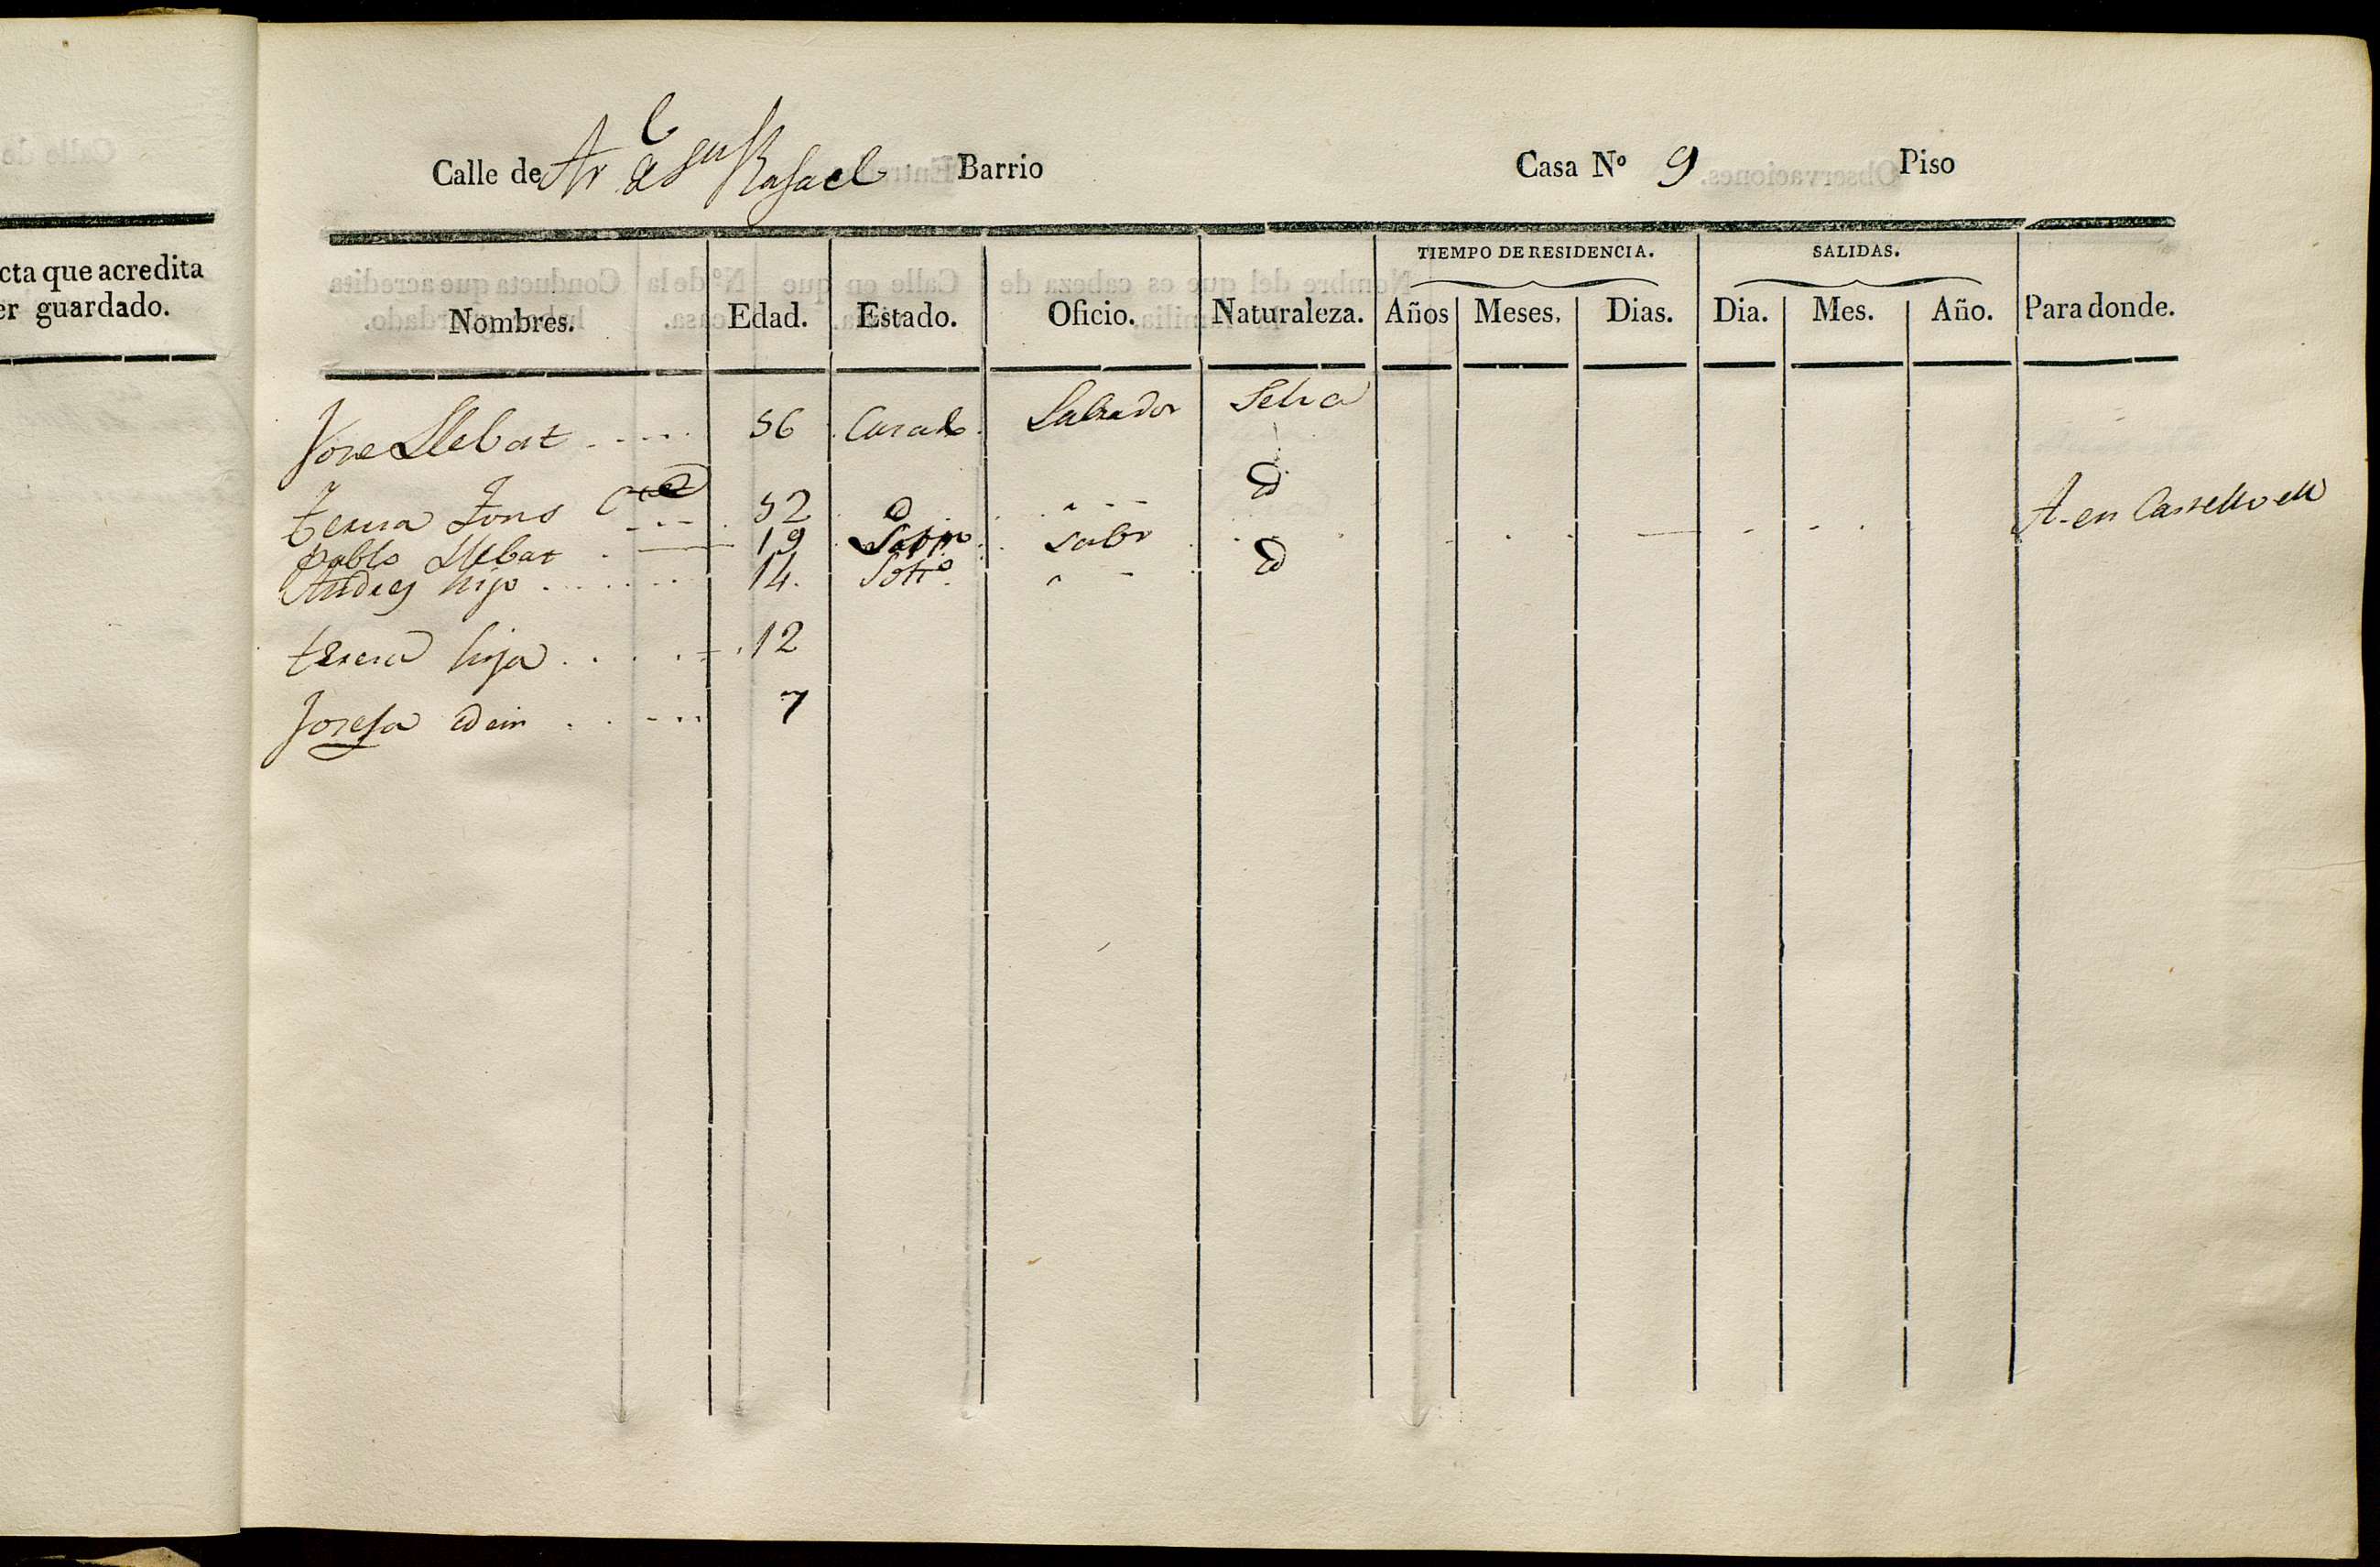 cta que acredita
er guardado.
Calle de Ar.l de Sn Rafael Barrio Casa Nº 9 Piso
TIEMPO DE RESIDENCIA. SALIDAS.
Nombres. Edad. Estado. Oficio. Naturaleza. Años Meses. Dias. Dia. Mes. Año. Para donde.
Jose Llebat 56 Casado Labrador Selva
Teresa Fons 52 Id Id
Pablo Llebat 19 Solto Labr A. en Castellvell
Andres hijo 14. Solto Id
teresa hija 12
Josefa idem 7